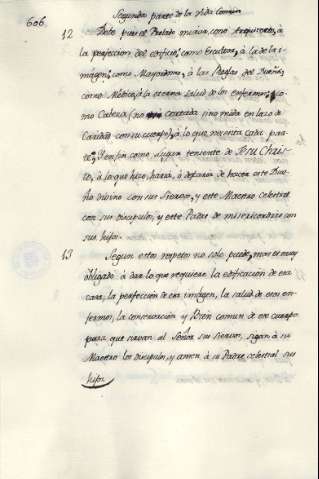 606.
Segunda parte de la Vida Comun
12 Debe pues el Prelado mirar, como Arquitecto, à
la perfeccion del edificio; como Escultor, à la de la i-
màgen; como Mayordomo, à las Reglas del Dueño;
como Mèdico, à la eterna salud de los enfermos; co-
mo Cabeza (no cortada sino unida en lazo de
Caridad con su cuerpo), à lo que necesita cada par-
te; Y en fin como Lugar teniente de Jesu Chris-
to, à lo que hizo, harà, ò dexarà de hacer este Due-
ño divino con sus Siervos, y este Maestro celestial
con sus discipulos, y este Padre de misericordias con
sus hijos.
13 Segun estos respetos no solo puede, mas es muy
obligado à dar lo que requiere la edificacion de esa
casa, la perfeccion de esa imàgen, la salud de esos en-
fermos, la conservacion y bien comun de ese cuerpo
para que sirvan al Señor sus Siervos, sigan à su
Maestro los discipulos, y amen à su Padre celestial sus
hijos.